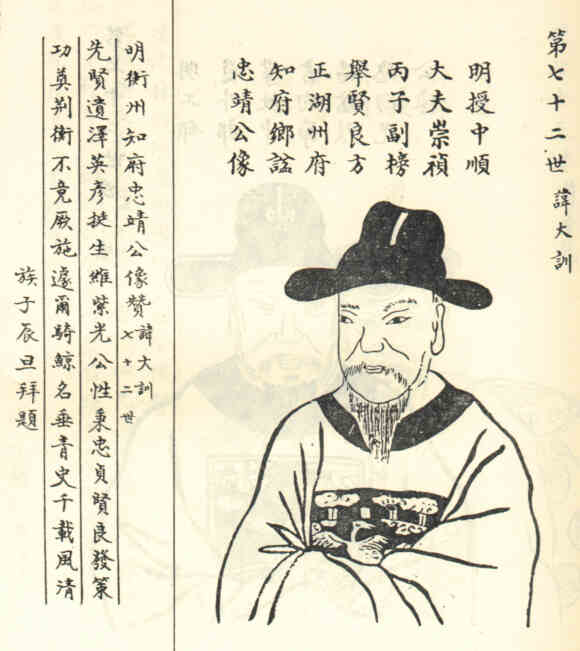 第七十二世 諱大訓
明授中順
大夫崇禎
丙子副榜
舉賢良方
正湖州府
知府鄉諡
忠靖公像
明衡州知府忠靖公像贊 諱大訓 七十二世
先賢遺澤英彥挺生維紫光公性秉忠貞賢良發策
功奠荊衡不竟厥施遽爾騎鯨名垂青史千載風清
族子辰旦拜題